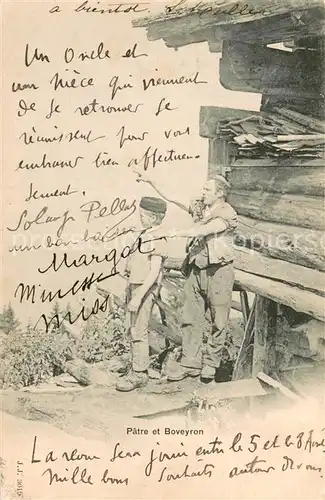 a bientot
Un Oncle et
une Nièce qui viennent
de se retrouver se
réunissent pour vous
embrasser bien affectueu-
sement.
Solange
un bon
Margot
miss
Pâtre et Boveyron
J.J. 3615
La revue sera jouée entre le 5 et le 8
Mille bons souhaits autour de vous